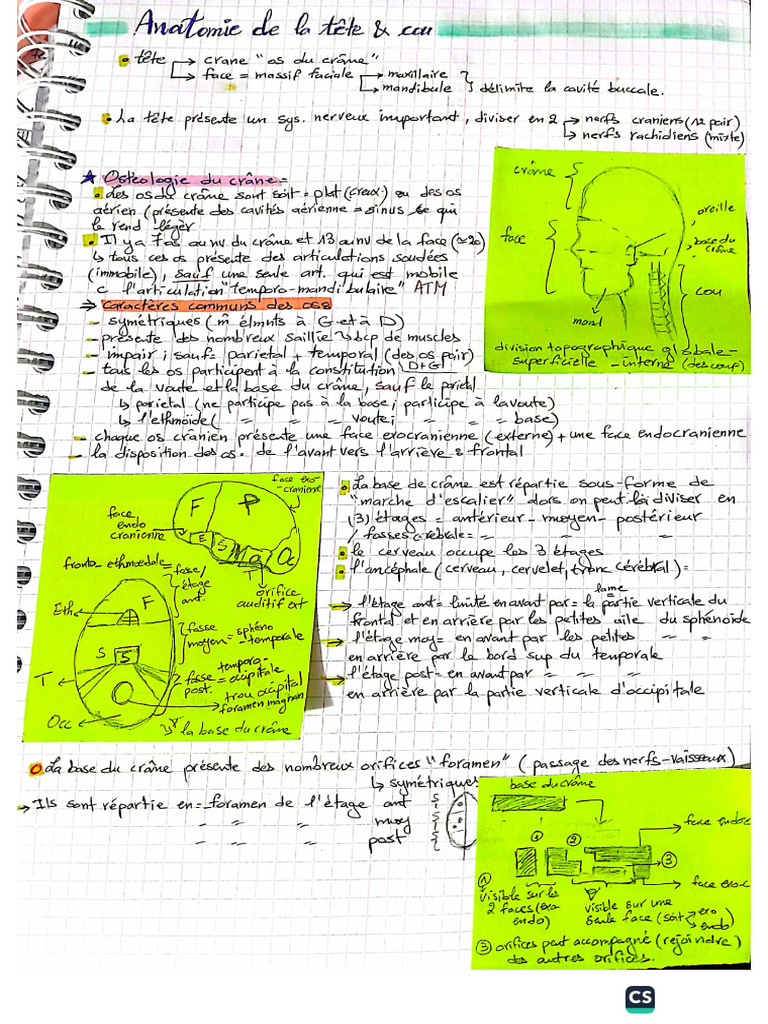 Anatomie de la tête & cou
tête → crane "os du crâne"
↳ face = massif faciale → maxillaire
↳ mandibule } délimite la cavité buccale.
La tête présente un sys. nerveux important, diviser en 2 → nerfs craniens (12 pair)
↳ nerfs rachidiens (mixte)
★ Ostéologie du crâne =
Les os du crâne sont soit = plat (creux) ou des os
aérien (présente des cavités aérienne = sinus ce qui
le rend léger
Il y a 7 os au nv du crâne et 13 au nv de la face (≃20)
↳ tous ces os présente des articulations soudées
(immobile), sauf une seule art. qui est mobile
c l'articulation "temporo-mandibulaire" ATM
⇒ caractères communs des os
- symétriques (m̂ élmnts à G et à D)
- présente des nombreux saillie ↳ bcp de muscles
- impair ; sauf = parietal + temporal (des os pair)
D+G
- tous les os participent à la constitution
de la voute et la base du crâne, sauf le parietal
↳ parietal (ne participe pas à la base ; participe à la voute)
↳ l'ethmoïde ( " " " voute ; " " " base)
- chaque os crânien présente une face exocranienne (externe) + une face endocranienne
- la disposition des os. de l'avant vers l'arrière = frontal
crâne
face
oreille
base du crâne
cou
division topographique globale -
superficielle - interne (des coup)
face exo-
cranienne
face
endo
cranienne
F
P
E
S
T
Oc
orifice
auditif ext
fronto-ethmoïdale = fosse/
étage
ant.
Eth
F
fosse
moyen = sphéno
- temporale
S
S
T
fosse
post. = temporo-
occipitale
trou occipital
foramen magnum
Occ
la base du crâne
La base de crâne est répartie sous-forme de
"marche d'escalier" alors on peut la diviser en
(3) étages = antérieur - moyen - postérieur
/ fosses cérébrale = " " "
le cerveau occupe les 3 étages
l'ancéphale (cerveau, cervelet, tronc cérébral) =
lame
→ l'étage ant = limité en avant par = la partie verticale du
frontal et en arrière par les petites aile du sphénoïde
→ l'étage moy = en avant par les petites " "
en arrière par le bord sup du temporale
→ l'étage post = en avant par " " "
en arrière par la partie verticale d'occipitale
La base du crâne présente des nombreux orifices "foramen" (passage des nerfs - vaisseaux)
↳ symétriques
→ Ils sont répartie en = foramen de l'étage ant
" " " moy
" " " post
base du crâne
face endoc
① ② ③
face exoc
①
visible sur les
2 faces (exo
endo)
visible sur une
seule face (soit → exo
endo)
③ orifices peut accompagné (rejoindre)
des autres orifices.
CS